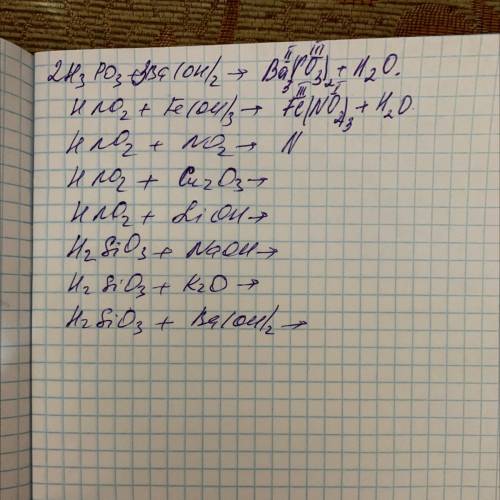 2H₃PO₃+3Ba(OH)₂→ Ba₃(PO₃)₂+H₂O.
HNO₂ + Fe(OH)₃→ Fe(NO₂)₃+H₂O.
HNO₂ + NO₂→ N
HNO₂ + Cr₂O₃→
HNO₂ + LiOH→
H₂SiO₃ + NaOH→
H₂SiO₃ + K₂O→
H₂SiO₃ + Ba(OH)₂→